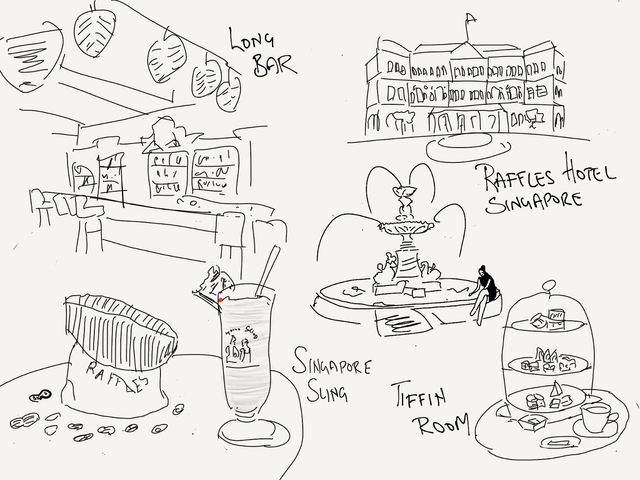 LONG
BAR
RAFFLES HOTEL
SINGAPORE
RAFFLES
SINGAPORE
SLING
TIFFIN
ROOM